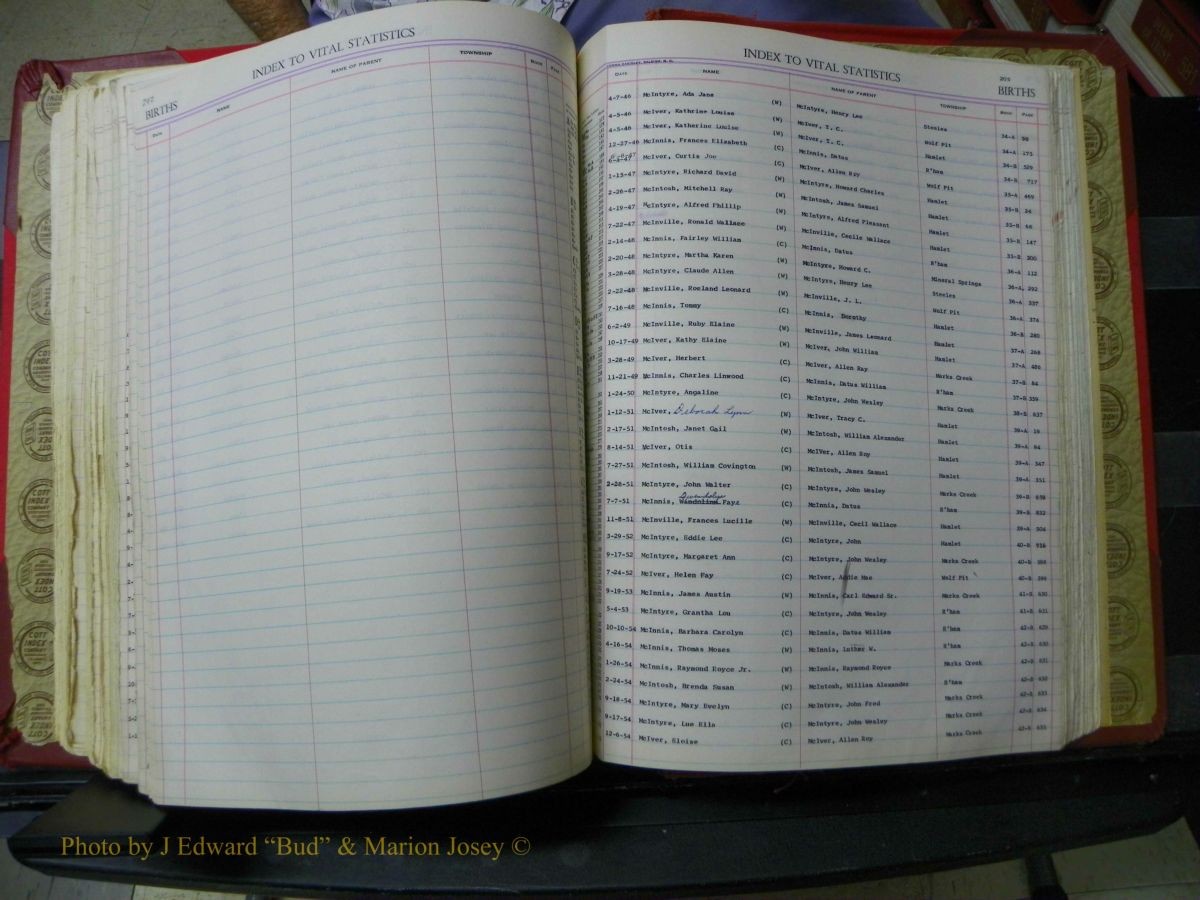 INDEX TO VITAL STATISTICS
BIRTHS
DATE NAME NAME OF PARENT TOWNSHIP BOOK PAGE
INDEX TO VITAL STATISTICS
BIRTHS
DATE NAME NAME OF PARENT TOWNSHIP BOOK PAGE
4-7-46 McIntyre, Ada Jane (W) McIntyre, Henry Lee Steeles 34-A 98
4-5-46 McIver, Kathrine Louise (W) McIver, T. C. Wolf Pit 34-A 175
4-5-46 McIver, Katherine Louise (W) McIver, T. C. Hamlet 34-B 529
12-27-46 McInnis, Frances Elizabeth (C) McInnis, Datus R'ham 34-B 717
McIver, Curtis Joe (C) McIver, Allen Roy Wolf Pit 35-A 469
1-15-47 McIntyre, Richard David (W) McIntyre, Howard Charles Hamlet 35-B 34
2-26-47 McIntosh, Mitchell Ray (W) McIntosh, James Samuel Hamlet 35-B
4-19-47 McIntyre, Alfred Phillip (W) McIntyre, Alfred Pleasant Hamlet 35-B 147
7-22-47 McInville, Ronald Wallace (W) McInville, Cecile Wallace Hamlet 35-B 300
2-14-48 McInnis, Fairley William (C) McInnis, Datus R'ham 36-A 112
2-20-48 McIntyre, Martha Karen (W) McIntyre, Howard C. Mineral Springs 36-A 292
3-28-48 McIntyre, Claude Allen (W) McIntyre, Henry Lee Steeles 36-A 337
2-22-48 McInville, Roeland Leonard (W) McInville, J. L. Wolf Pit 36-A 374
7-16-48 McInnis, Tommy (C) McInnis, Dorothy Hamlet 36-B 280
6-2-49 McInville, Ruby Elaine (W) McInville, James Leonard Hamlet 37-A 268
10-17-49 McIver, Kathy Elaine (W) McIver, John William Hamlet 37-A 486
3-28-49 McIver, Herbert (C) McIver, Allen Ray Marks Creek 37-B 84
11-21-49 McInnis, Charles Linwood (C) McInnis, Datus William R'ham 37-B 339
1-24-50 McIntyre, Angaline (C) McIntyre, John Wesley Marks Creek 38-B 637
1-12-51 McIver, Deborah Lynn (W) McIver, Tracy C. Hamlet 39-A 19
2-17-51 McIntosh, Janet Gail (W) McIntosh, William Alexander Hamlet 39-A 94
8-14-51 McIver, Otis (C) McIver, Allen Roy Hamlet 39-A 347
7-27-51 McIntosh, William Covington (W) McIntosh, James Samuel Hamlet 39-A 351
2-28-51 McIntyre, John Walter (C) McIntyre, John Wesley Marks Creek 39-B 658
Gwendolyn
7-7-51 McInnis, Faye (C) McInnis, Datus R'ham 39-B 832
11-8-51 McInville, Frances Lucille (W) McInville, Cecil Wallace Hamlet 39-A 504
3-29-52 McIntyre, Eddie Lee (C) McIntyre, John Hamlet 40-B
9-17-52 McIntyre, Margaret Ann (C) McIntyre, John Wesley Marks Creek 40-B
7-24-52 McIver, Helen Fay (C) McIver, Addie Mae Wolf Pit 40-B
9-19-53 McInnis, James Austin (W) McInnis, Carl Edward Sr. Marks Creek 41-B 630
5-4-53 McIntyre, Grantha Lou (C) McIntyre, John Wesley R'ham 41-B 631
10-10-54 McInnis, Barbara Carolyn (C) McInnis, Datus William R'ham 42-B 629
4-16-54 McInnis, Thomas Moses (W) McInnis, Luther W. R'ham 42-B 630
1-26-54 McInnis, Raymond Royce Jr. (W) McInnis, Raymond Royce Marks Creek 42-B 631
2-24-54 McIntosh, Brenda Susan (W) McIntosh, William Alexander R'ham 42-B 632
9-18-54 McIntyre, Mary Evelyn (C) McIntyre, John Fred Marks Creek 42-B 633
9-17-54 McIntyre, Lue Ella (C) McIntyre, John Wesley Marks Creek 42-B 634
12-6-54 McIver, Eloise (C) McIver, Allen Roy Marks Creek 42-B 635
Photo by J Edward “Bud” & Marion Josey ©